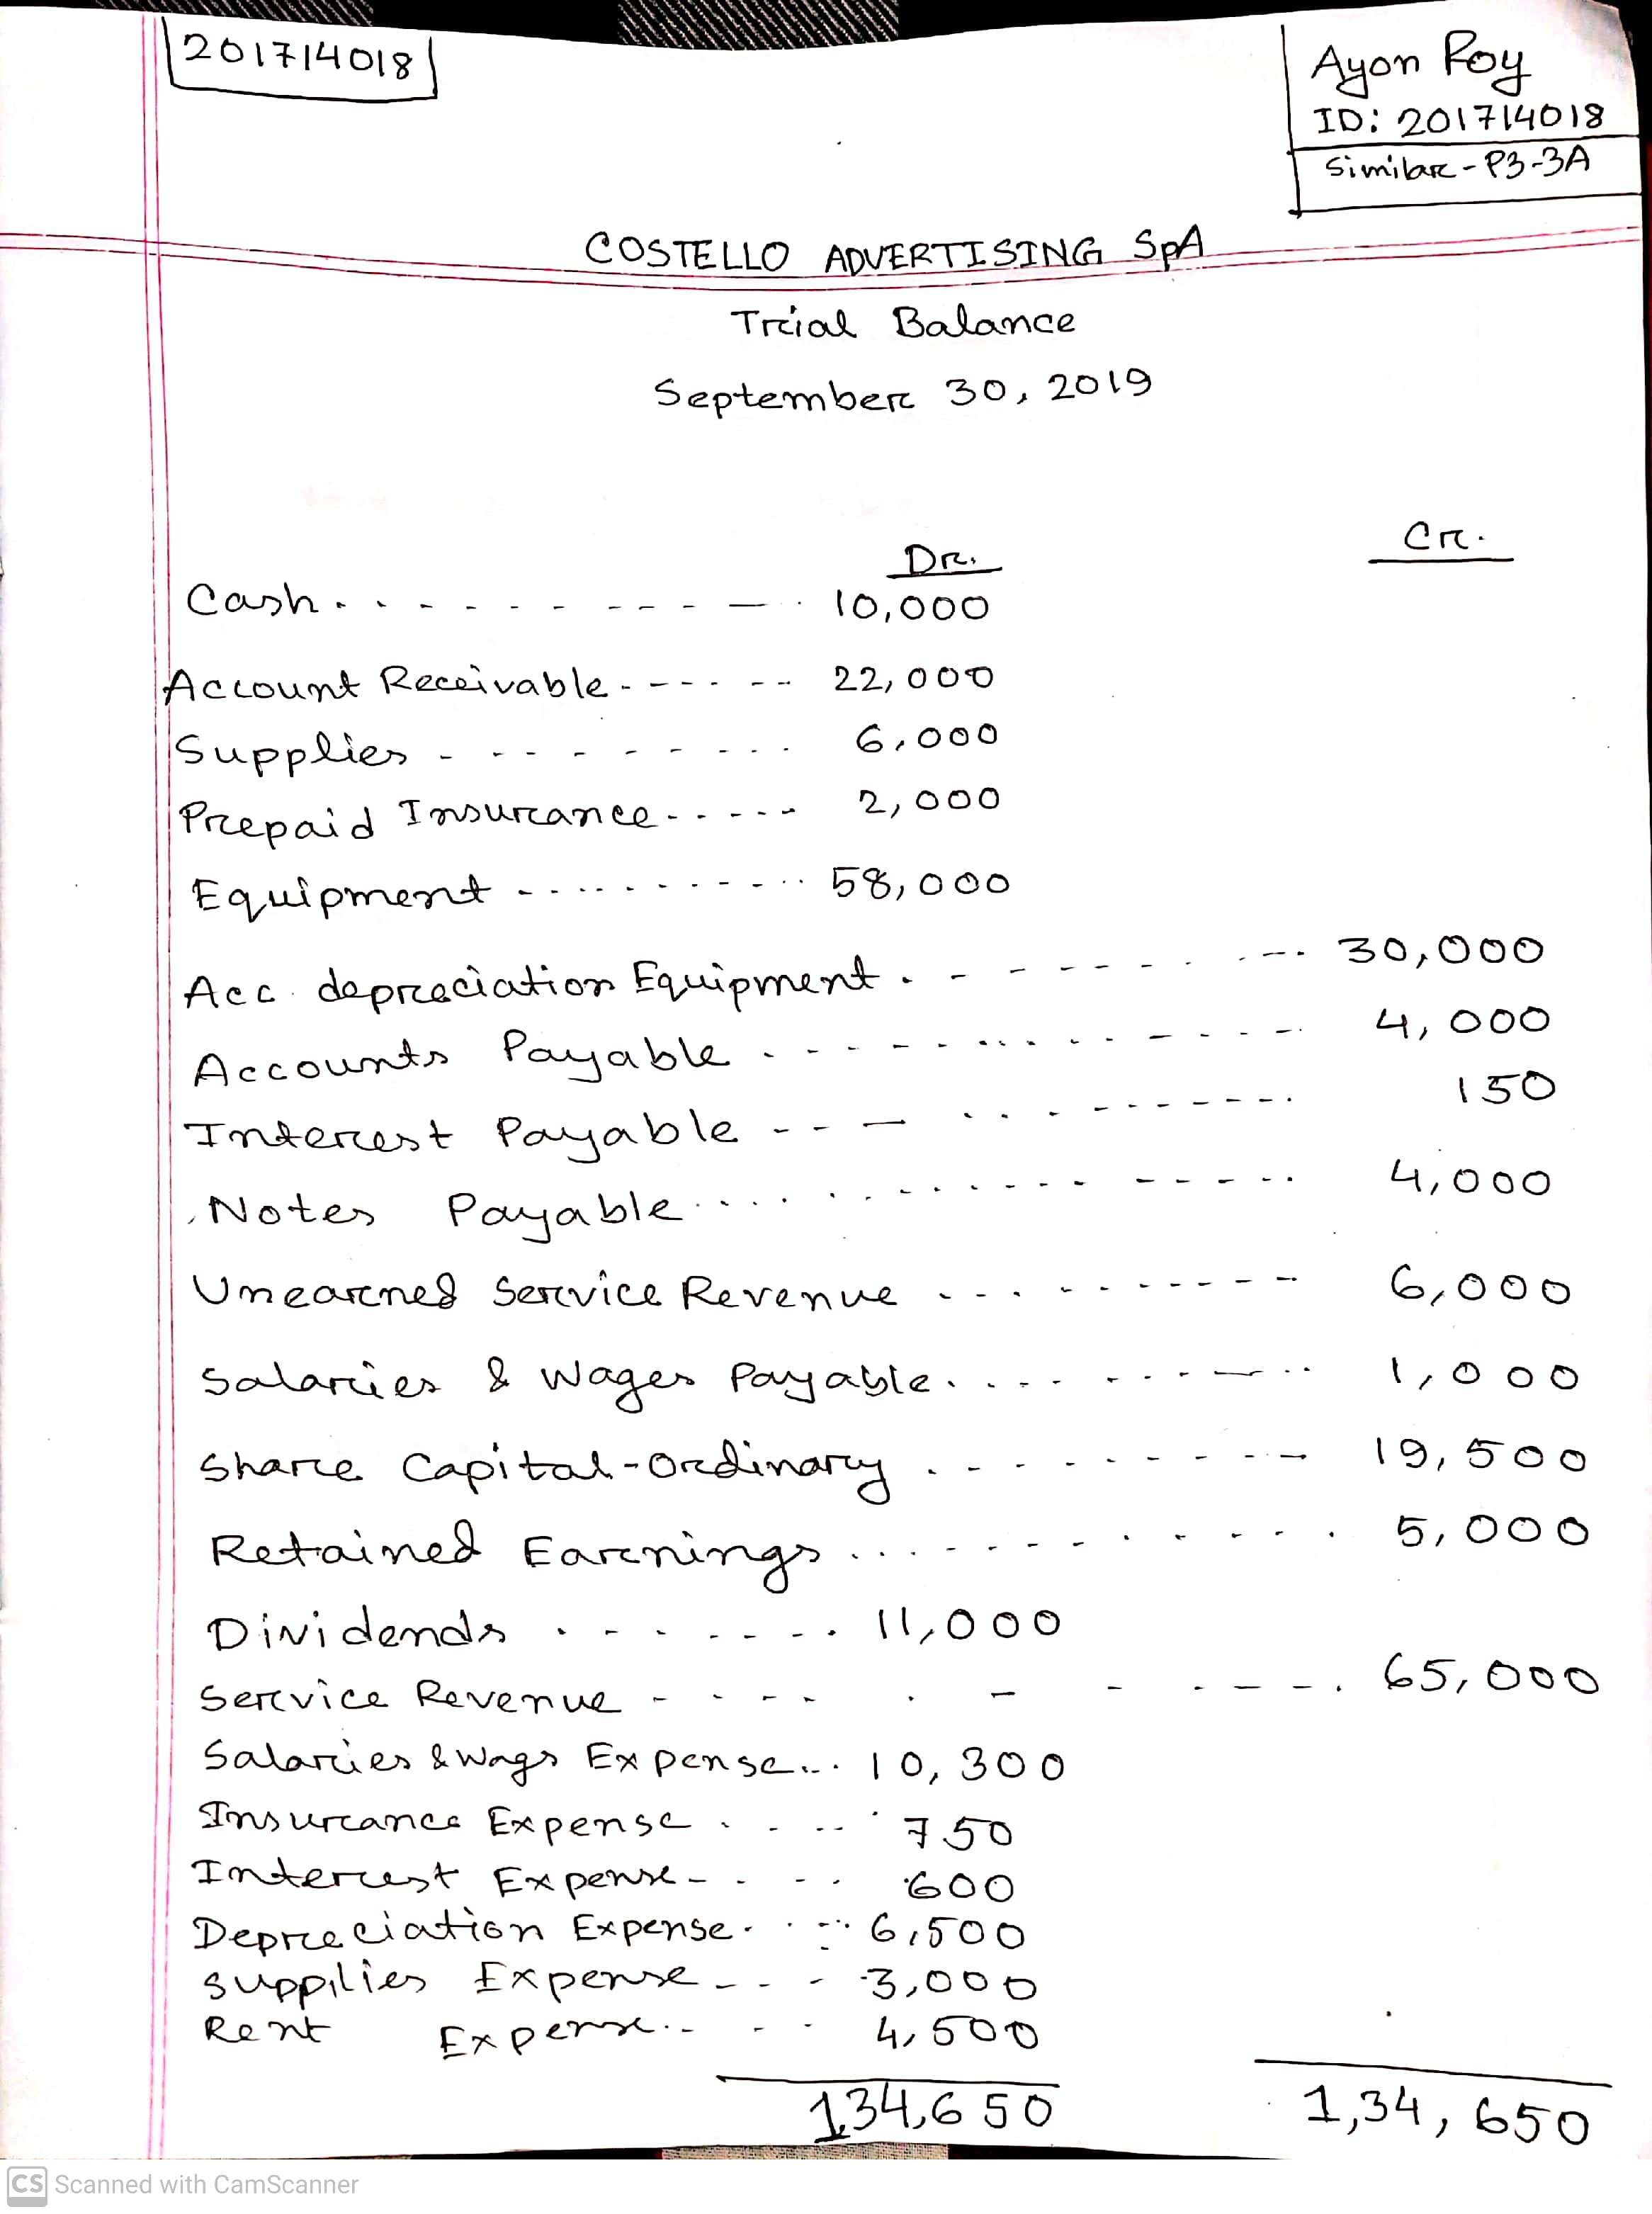 201714018
Ayon Roy
ID: 201714018
Similar - P3-3A
COSTELLO ADVERTISING SpA
Trial Balance
September 30, 2019
Dr. Cr.
Cash 10,000
Account Receivable 22,000
Supplies 6,000
Prepaid Insurance 2,000
Equipment 58,000
Acc. depreciation Equipment 30,000
Accounts Payable 4,000
Interest Payable 150
Notes Payable 4,000
Unearned Service Revenue 6,000
Salaries & Wages Payable 1,000
Share Capital-Ordinary 19,500
Retained Earnings 5,000
Dividends 11,000
Service Revenue 65,000
Salaries & Wags Expense 10,300
Insurance Expense 750
Interest Expense 600
Depreciation Expense 6,500
Suppilies Expense 3,000
Rent Expense 4,500
134,650 1,34,650
CS Scanned with CamScanner